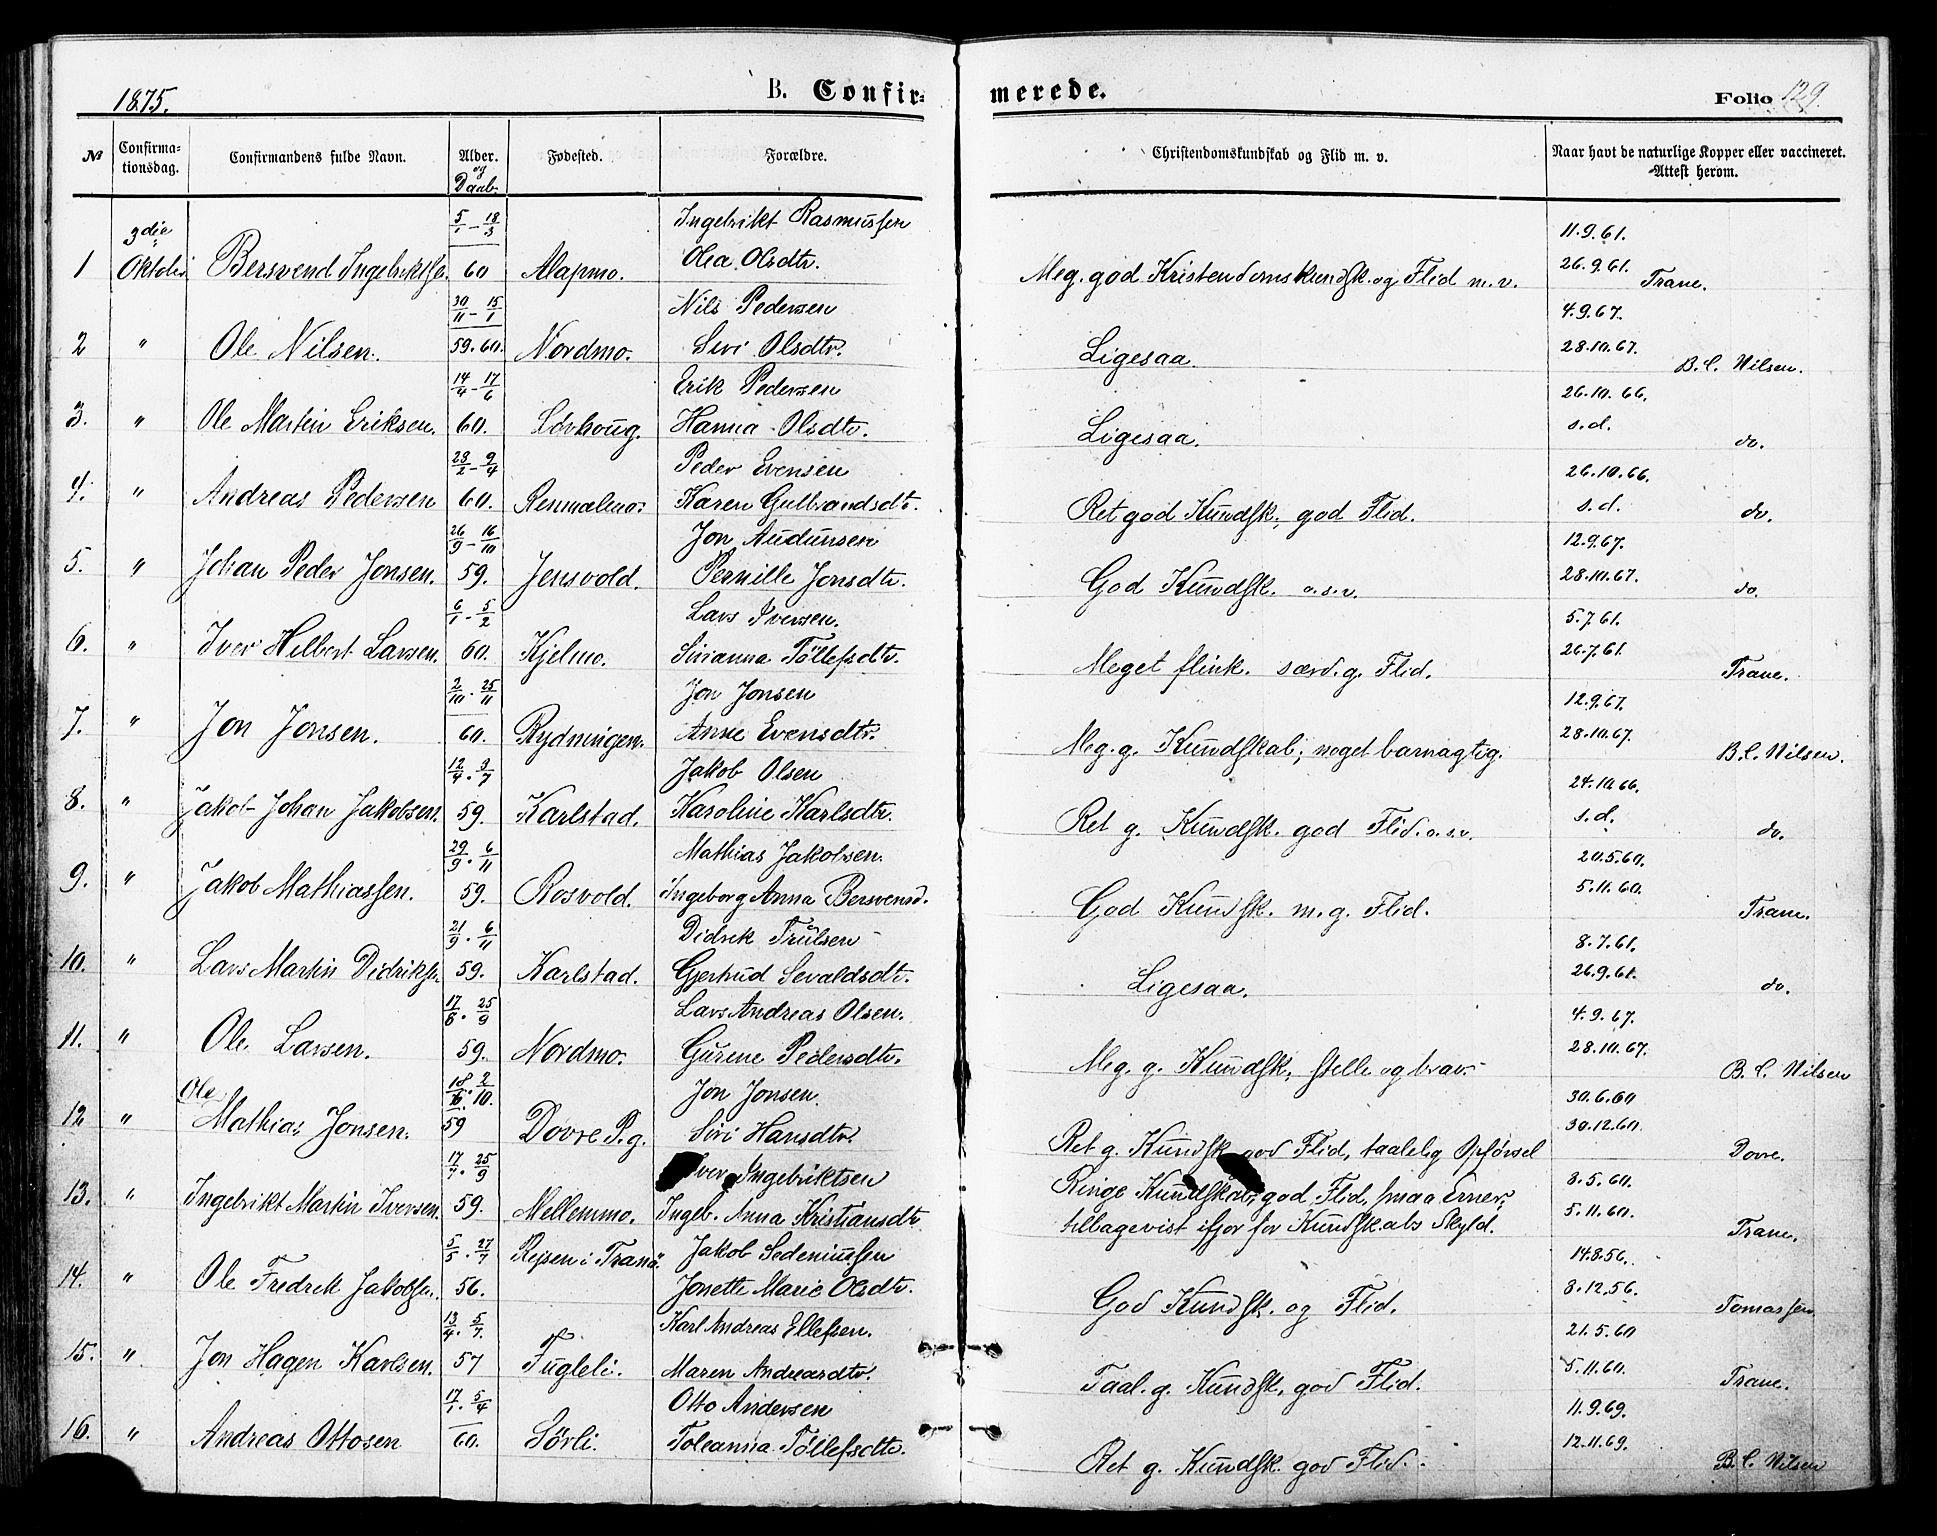 1875.
B. Confir-
merede.
Folio 129.
№
Confirma-
tionsdag.
Confirmandens fulde Navn.
Alder.
og
Daab
Fødested.
Forældre.
Christendomskundskab og Flid m. v.
Naar havt de naturlige Kopper eller vaccineret.
Attest herom.
3die 5/1 - 18/3 Ingebrikt Rasmussen 11.9.61.
1 Oktober Bersvend Ingebriktsen 60 Alapmo. Olea Olsdtr. Meg. god Kristendomskundsk. og Flid m.v. 26.9.61. Trane.
30/11 - 15/1 Nils Pedersen 4.9.67.
2 " Ole Nilsen. 59.60. Nordmo. Siri Olsdtr. Ligesaa. 28.10.67. B. C. Nilsen.
14/4 - 17/6 Erik Pedersen 26.10.66.
3. " Ole Martin Eriksen. 60. Sørhoug. Hanna Olsdtr. Ligesaa. s.d. do.
23/2 - 9/4 Peder Evensen 26.10.66.
4. " Andreas Pedersen 60. Renmælmo. Karen Gulbrandsdtr. Ret god Kundsk., god Flid. s.d. do.
26/9 - 16/10 Jon Audunsen 12.9.67.
5. " Johan Peder Jonsen. 59. Jensvold. Pernille Jonsdtr. God Kundsk. o.s.v. 28.10.67. do.
6/1 . 5/2 Lars Iversen. 5.7.61.
6. " Iver Hilbert Larsen. 60. Kjelmo. Sirianna Tollefsdtr. Meget flink. særd. g. Flid. 26.7.61. Trane.
2/10 . 25/11 Jon Jonsen 12.9.67.
7. " Jon Jonsen. 60. Rydningen. Anne Evensdtr. Meg. g. Kundskab; noget barnagtig. 28.10.67. B. C. Nilsen.
12/4 . 3/7 Jakob Olsen 24.10.66.
8. " Jakob Johan Jakobsen. 59. Karlstad. Karoline Karlsdtr. Ret g. Kundsk. god Flid. o.s.v. s.d. do.
29/9 . 6/11 Mathias Jakobsen. 20.5.60.
9. " Jakob Mathiassen. 59. Rosvold. Ingeborg Anna Bersvensd. God Kundsk. m. g. Flid. 5.11.60. Trane.
21/9 . 6/11 Didrek Trulsen 8.7.61.
10. " Lars Martin Didriksen 59. Karlstad. Gjertrud Sevaldsdtr. Ligesaa. 26.9.61. do.
17/8 . 25/9 Lars Andreas Olsen. 4.9.67.
11. " Ole Larsen. 59. Nordmo. Gurine Pedersdtr. Meg. g. Kundsk. stille og brav 28.10.67. B. C. Nilsen
Ole . 2/10. Jon Jonsen. 30.6.60
12 " Mathias Jonsen. 59 Dovre P.g. Siri Hansdtr. Ret g. Kundsk. god Flid, taalelig Opførsel 30.12.60. Dovre.
17/7 . 25/9 Iver Ingebriktsen 8.5.60.
13. " Ingebrikt Martin Iversen. 59. Mellemmo. Ingeb. Anna Kristiansdtr. Ringe Kundskab, god Flid, smaa Evner, 5.11.60.
tilbagevist ifjor for Kundskabs Skyld. Trane.
5/5 . 27/7 Rejsen i Tranö. Jakob Sedeniussen 14.8.56.
14. " Ole Fredrek Jakobsen. 56. Jonette Marie Olsdtr. God Kundsk. og Flid. 8.12.56. Tomassen
13/4 . 5/7. Karl Andreas Ellefsen. 21.5.60
15. " Jon Hagen Karlsen. 57 Fugleli. Maren Andreasdtr. Taal. g. Kundsk. god Flid. 5.11.60. Trane.
17/1 . 5/4 Otto Andersen 11.9.69.
16. " Andreas Ottosen 60. Sörli. Toleanna Tollefsdtr. Ret g. Kundsk. god Flid. 12.11.69. B. C. Nilsen